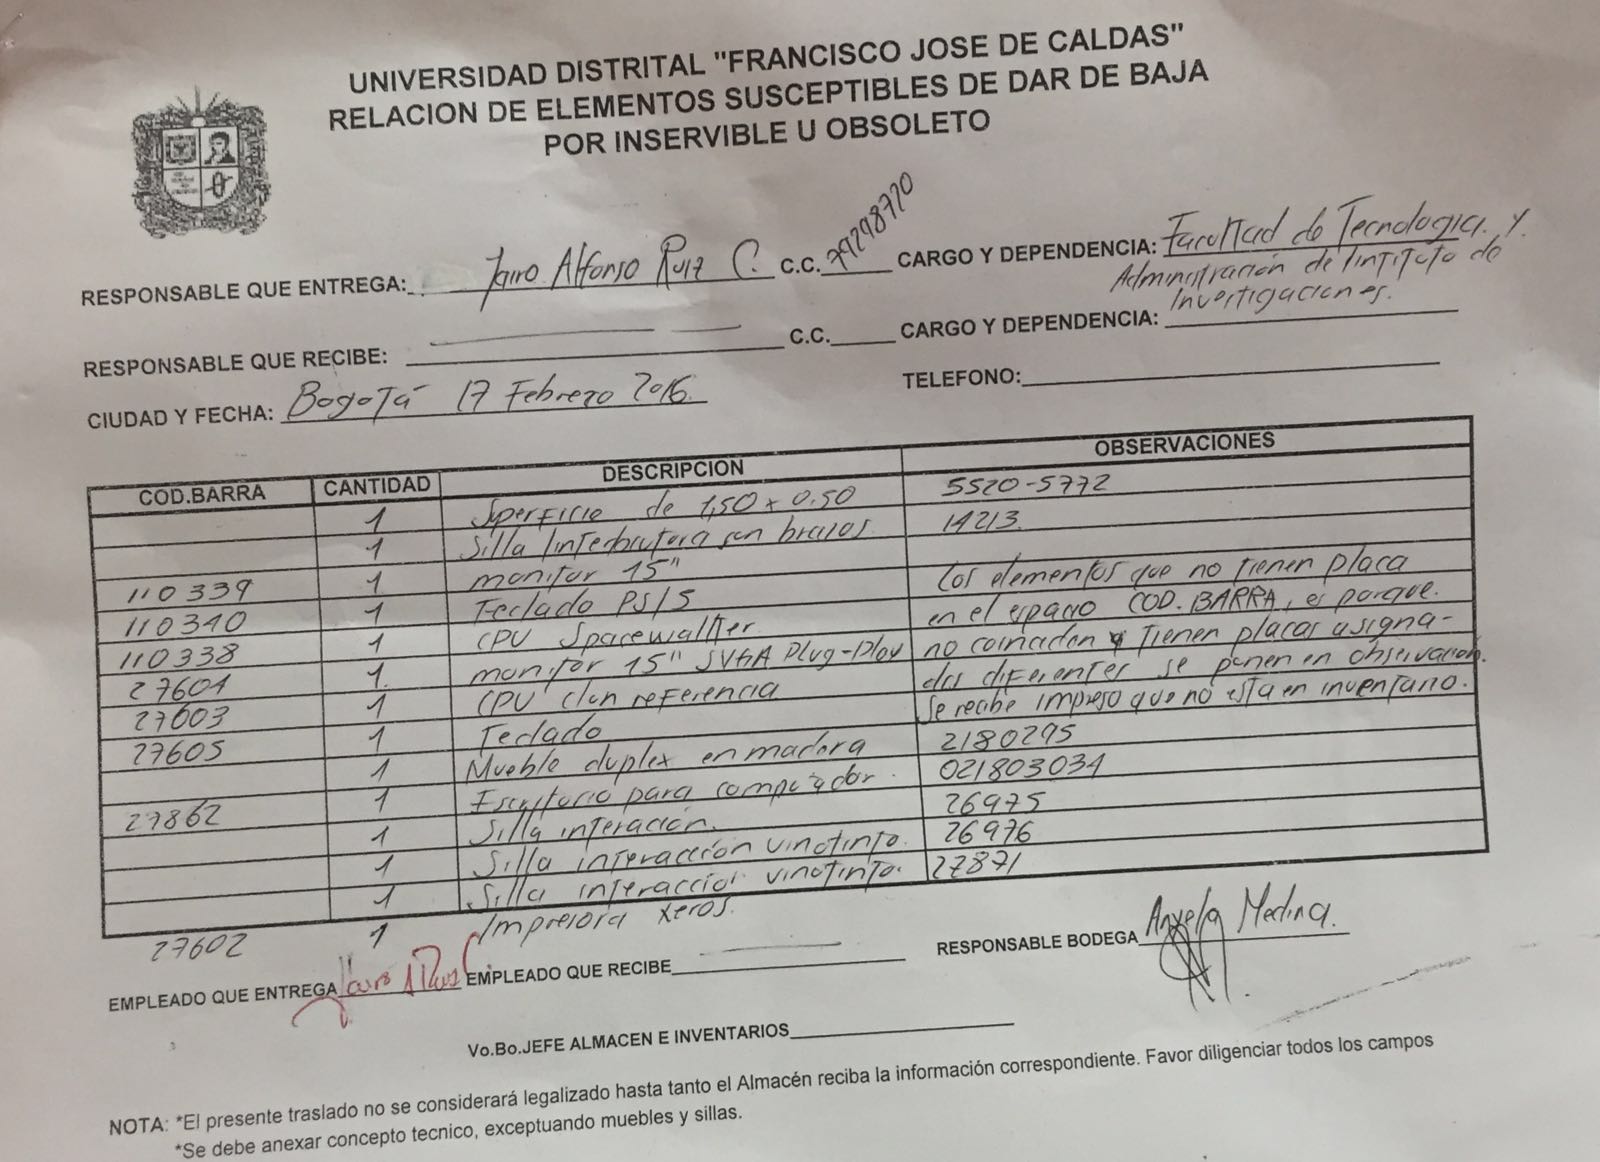 UNIVERSIDAD DISTRITAL "FRANCISCO JOSE DE CALDAS"
RELACION DE ELEMENTOS SUSCEPTIBLES DE DAR DE BAJA
POR INSERVIBLE U OBSOLETO
RESPONSABLE QUE ENTREGA: Jairo Alfonso Ruiz C. C.C. 79298720 CARGO Y DEPENDENCIA: Facultad de Tecnologia y
Administración del intituto de
Investigaciones.
RESPONSABLE QUE RECIBE: C.C. CARGO Y DEPENDENCIA:
CIUDAD Y FECHA: Bogotá 17 Febrero 2016 TELEFONO:
COD.BARRA CANTIDAD DESCRIPCION OBSERVACIONES
1 Superficie de 1,50 x 0.50 5520-5772
1 Silla con brazos 14213
110339 1 monitor 15"
110340 1 Teclado PS/S Los elementos que no tienen placa
110338 1 CPU Spacewalker en el espacio COD. BARRA, es porque
27604 1 monitor 15" SVGA Plug-Play no coinciden y Tienen placas asigna-
27603 1 CPU clon referencia das diferentes se ponen en observación.
27605 1 Teclado Se recibe impreso que no esta en inventario.
1 Mueble duplex en madera 2180295
27862 1 Escritorio para computador. 021803034
1 Silla interación. 26975
1 Silla interacción vinotinto. 26976
1 Silla interacción vinotinto. 27871
27602 1 Impresora xeros.
EMPLEADO QUE ENTREGA EMPLEADO QUE RECIBE RESPONSABLE BODEGA Angela Medina.
Vo.Bo.JEFE ALMACEN E INVENTARIOS
NOTA: *El presente traslado no se considerará legalizado hasta tanto el Almacén reciba la información correspondiente. Favor diligenciar todos los campos
*Se debe anexar concepto tecnico, exceptuando muebles y sillas.